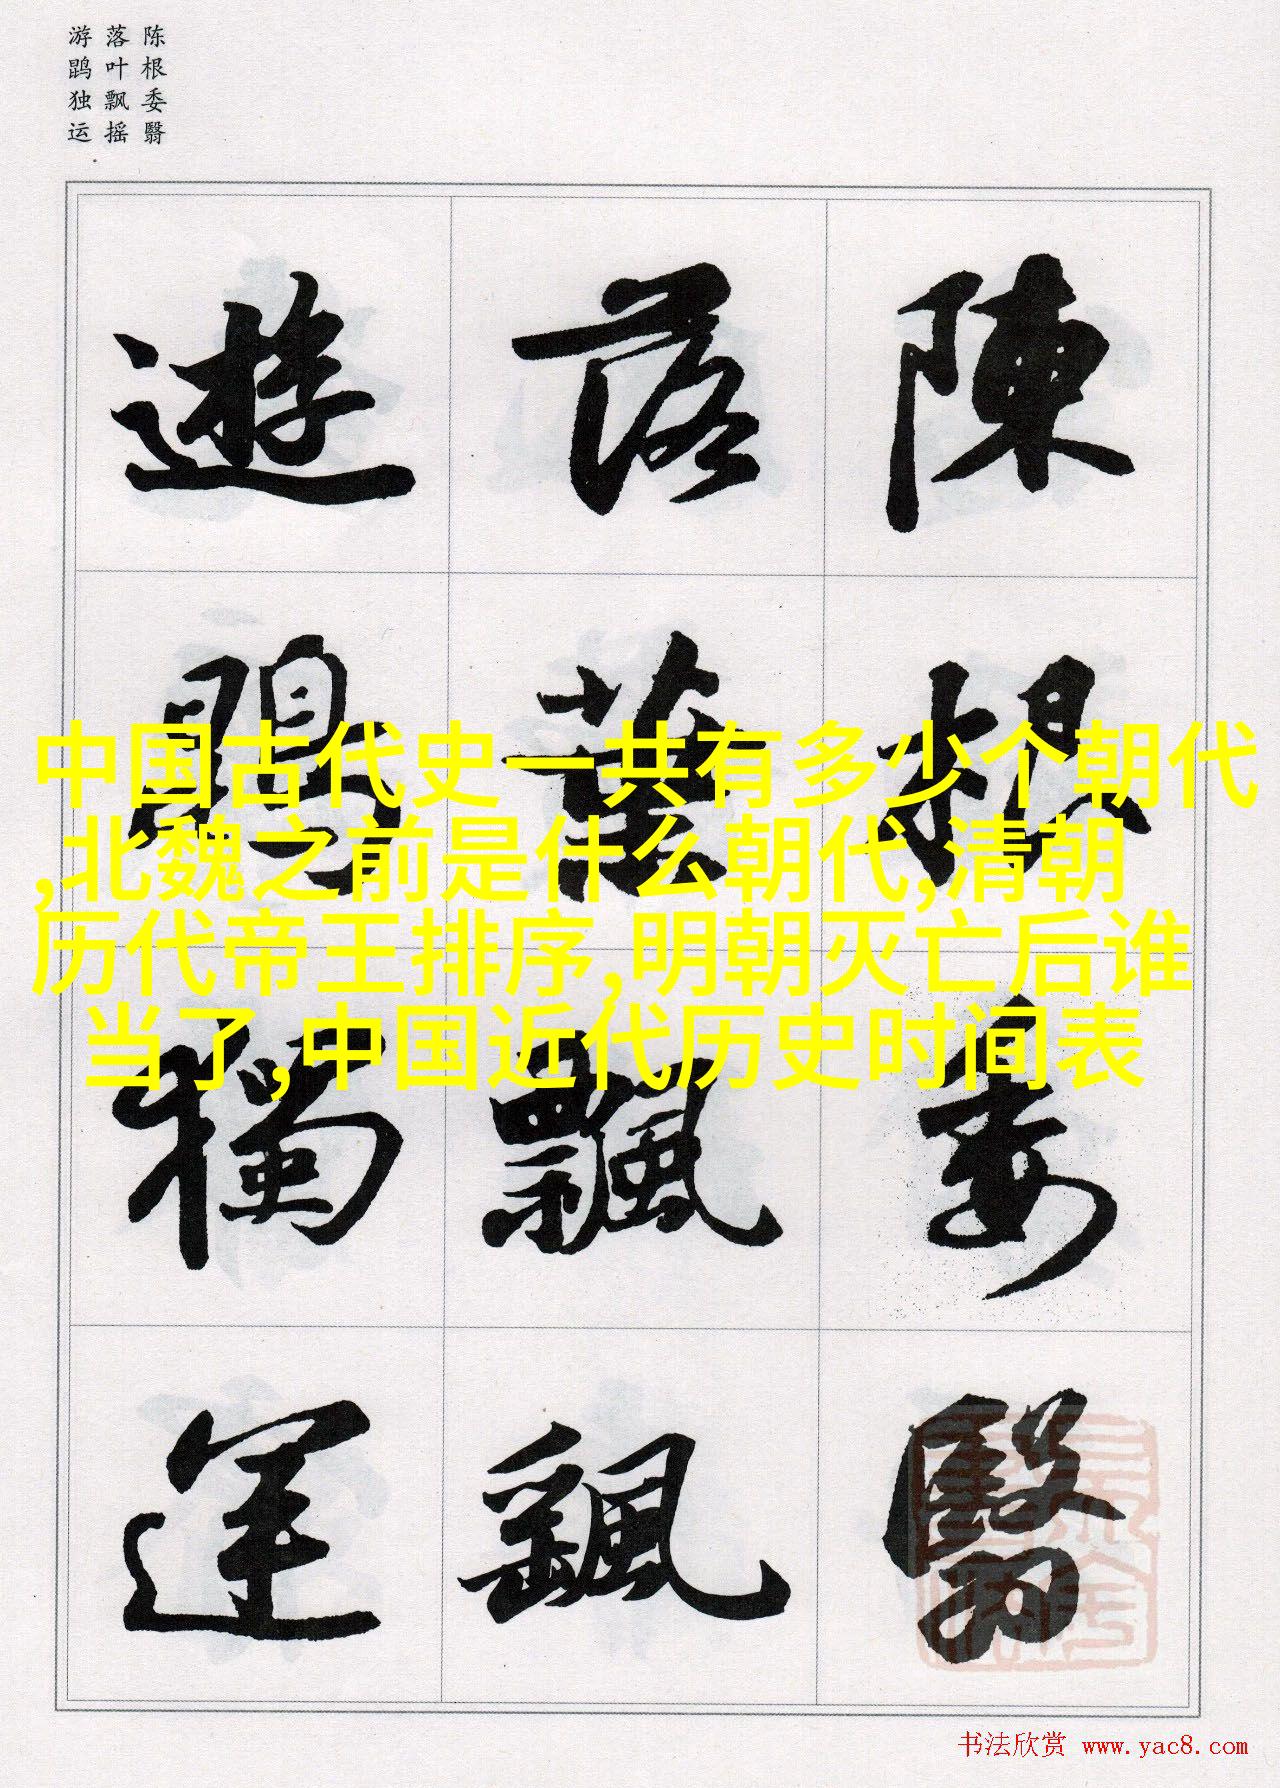 陈根委翳
落叶飘摇
游鹍独运
陳根委翳
落葉飄颻
遊鵾獨運
中国古代史一共有多少个朝代
,北魏之前是什么朝代,清朝
历代帝王排序,明朝灭亡后谁
当了,中国近代历史时间表
书法欣赏 www.yac8.com